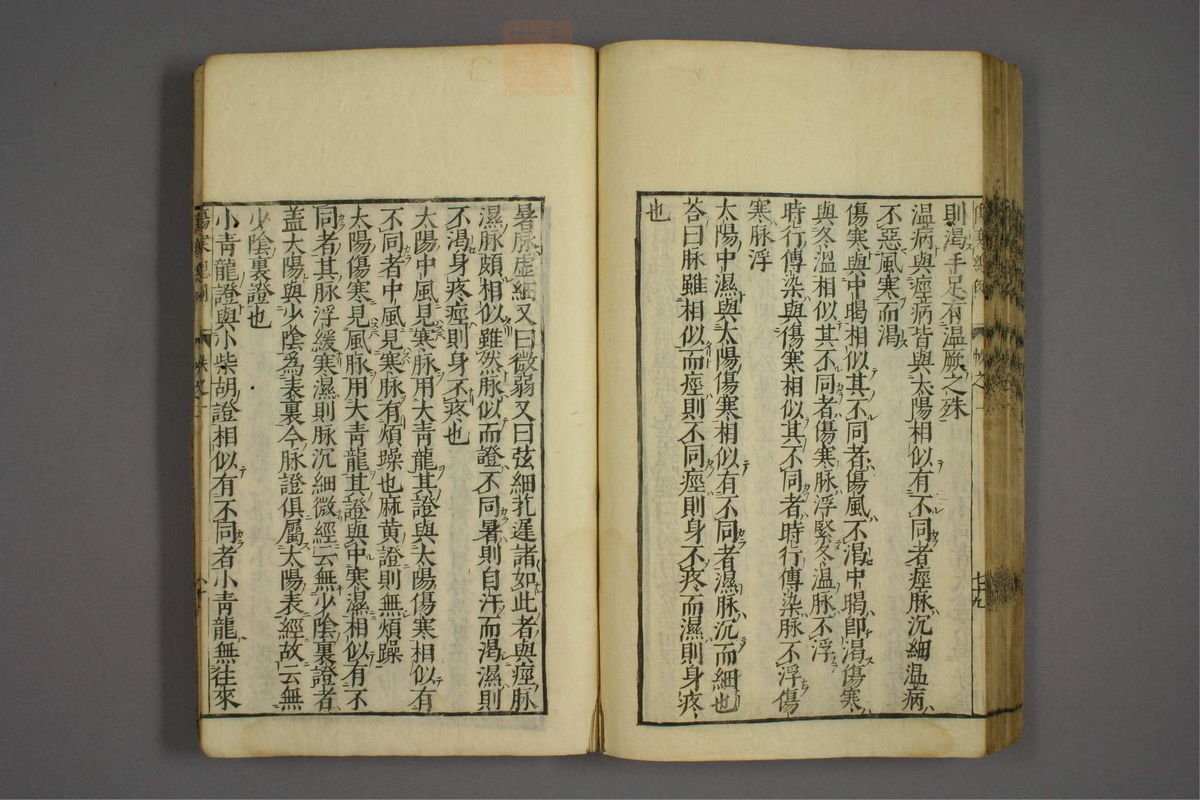 則渴手足有温厥之殊
温病與痙病皆與太陽相似有不同者痙脉沉細温病
不惡風寒而渴
傷寒與中暍相似其不同者傷風不渴中暍即渴傷寒
與冬温相似其不同者傷寒脉浮緊冬温脉不浮
時行傳染與傷寒相似其不同者時行傳染脉不浮傷
寒脉浮
太陽中濕與太陽傷寒相似有不同者濕脉沉而細也
荅曰脉雖相似而痙則不同痙則身不疼而濕則身疼
也
七十九
暑脉虚細又曰微弱又曰弦細芤遲諸如此者與痙脉
濕脉頗相似雖然脉似而證不同暑則自汗而渴濕則
不渴身疼痙則身不疼也
太陽中風見寒脉用大青龍其證與太陽傷寒相似有
不同者中風見寒脉有煩躁也麻黄證則無煩躁
太陽傷寒見風脉用大青龍其證與中寒濕相似有不
同者其脉浮緩寒濕則脉沉細微經云無少陰裏證者
盖太陽與少陰爲表裏今脉證俱屬太陽表經故云無
少陰裏證也
小青龍證與小柴胡證相似有不同者小青龍無往來
八十